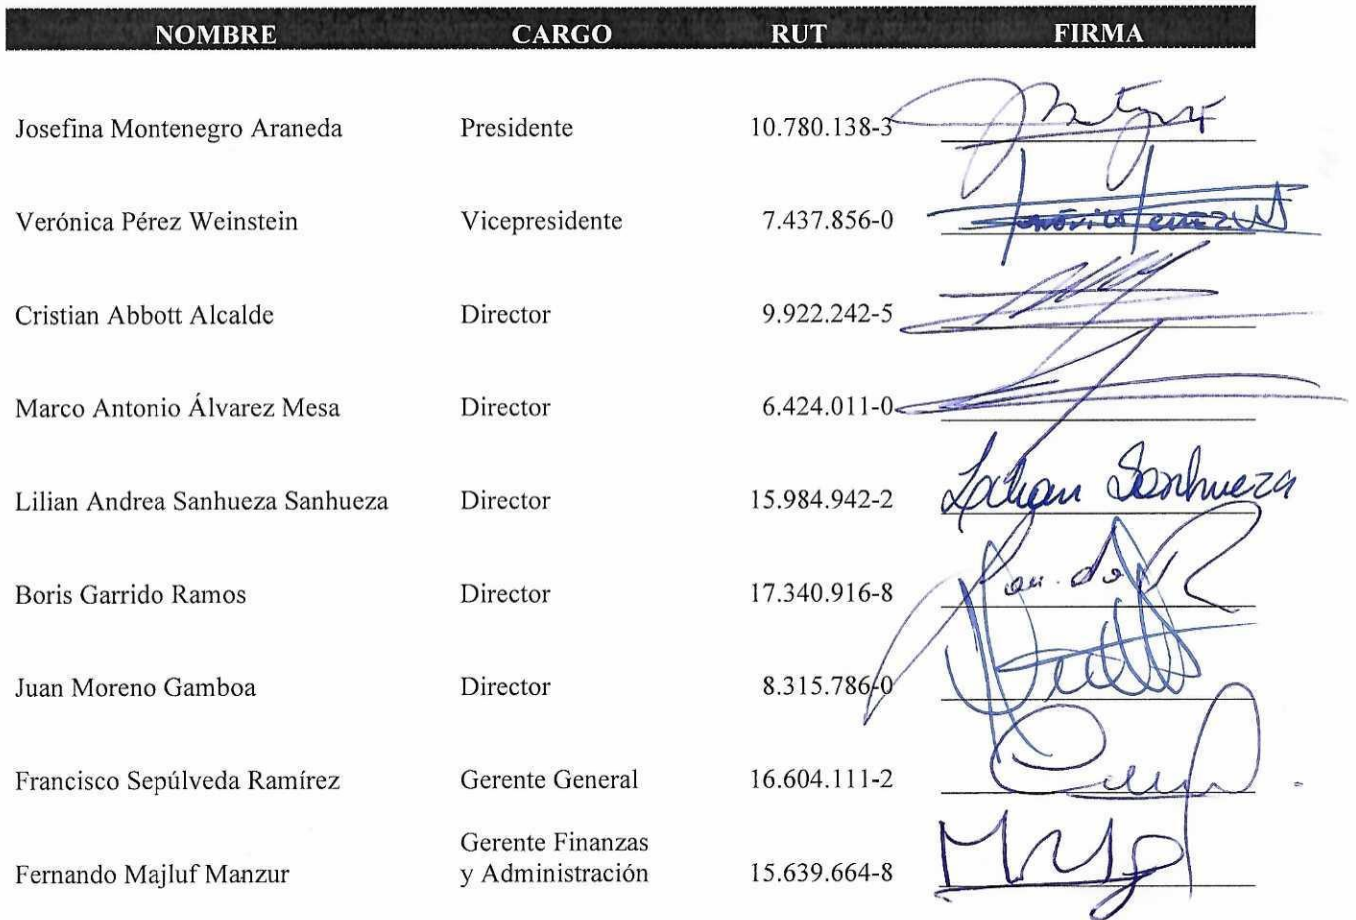 NOMBRE CARGO RUT FIRMA
Josefina Montenegro Araneda Presidente 10.780.138-3
Verónica Pérez Weinstein Vicepresidente 7.437.856-0
Cristian Abbott Alcalde Director 9.922.242-5
Marco Antonio Álvarez Mesa Director 6.424.011-0
Lilian Andrea Sanhueza Sanhueza Director 15.984.942-2 Sanhueza
Boris Garrido Ramos Director 17.340.916-8
Juan Moreno Gamboa Director 8.315.786-0
Francisco Sepúlveda Ramírez Gerente General 16.604.111-2
Gerente Finanzas
Fernando Majluf Manzur y Administración 15.639.664-8